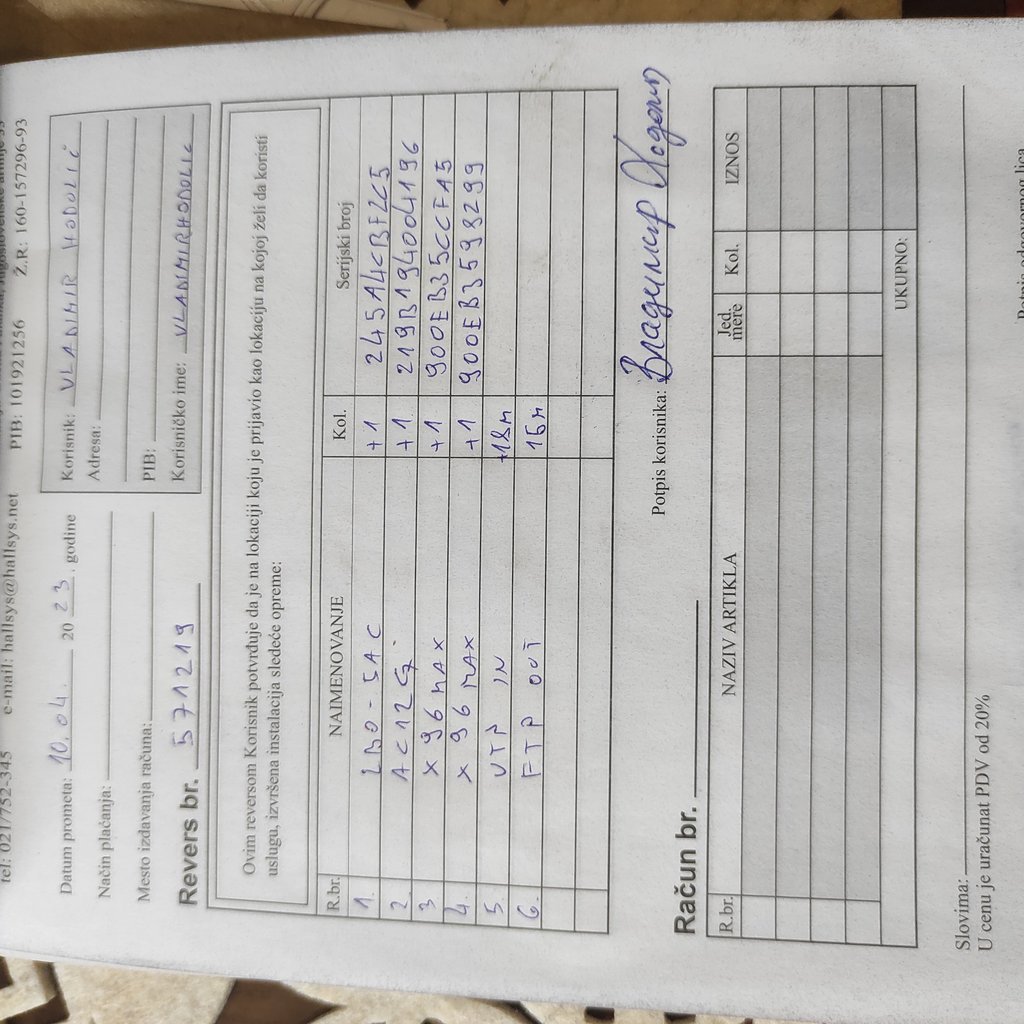 PIB: 101921256 Ž.R: 160-157296-93
tel: 021/752-345 e-mail: hallsys@hallsys.net
Datum prometa: 10.04. 2023. godine
Način plaćanja:
Mesto izdavanja računa:
Revers br. 571219
Korisnik: VLADIMIR HODOLIČ
Adresa:
PIB:
Korisničko ime: VLADIMIRHODOLIC
Ovim reversom Korisnik potvrđuje da je na lokaciji koju je prijavio kao lokaciju na kojoj želi da koristi
uslugu, izvršena instalacija sledeće opreme:
R.br. NAIMENOVANJE Kol. Serijski broj
1. LBO-5AC +1 245A4CBF2CC5
2. AC12G +1 219B194004196
3 X96 MAX +1 900EB35CCFA5
4. X 96 MAX +1 900EB3598299
5. UTP IN +18m
6. FTP OUT 16m
Potpis korisnika: Владимир Ходолич
Račun br.
R.br. NAZIV ARTIKLA Jed. mere Kol. IZNOS
UKUPNO:
Slovima:
U cenu je uračunat PDV od 20%
Potpis odgovornog lica